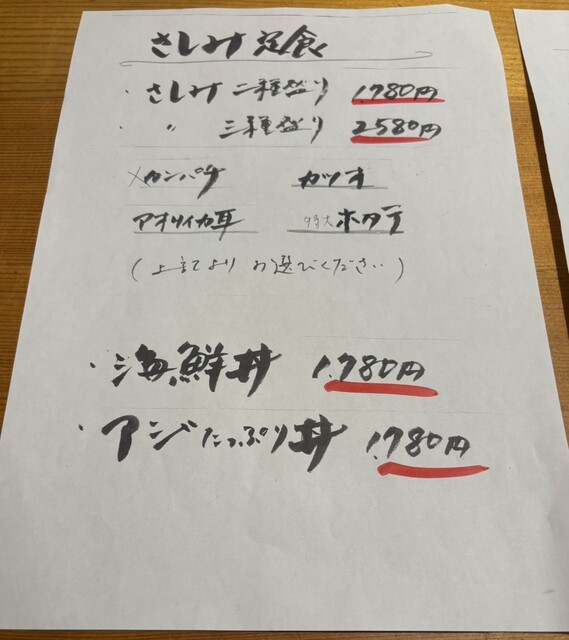 さしみ定食
・さしみ 二種盛り 1,780円
・ 〃 三種盛り 2580円
×カンパチ カツオ
アオリイカ耳 特大ホタテ
(上記よりお選びください)
・海鮮丼 1,780円
・アジたっぷり丼 1,780円